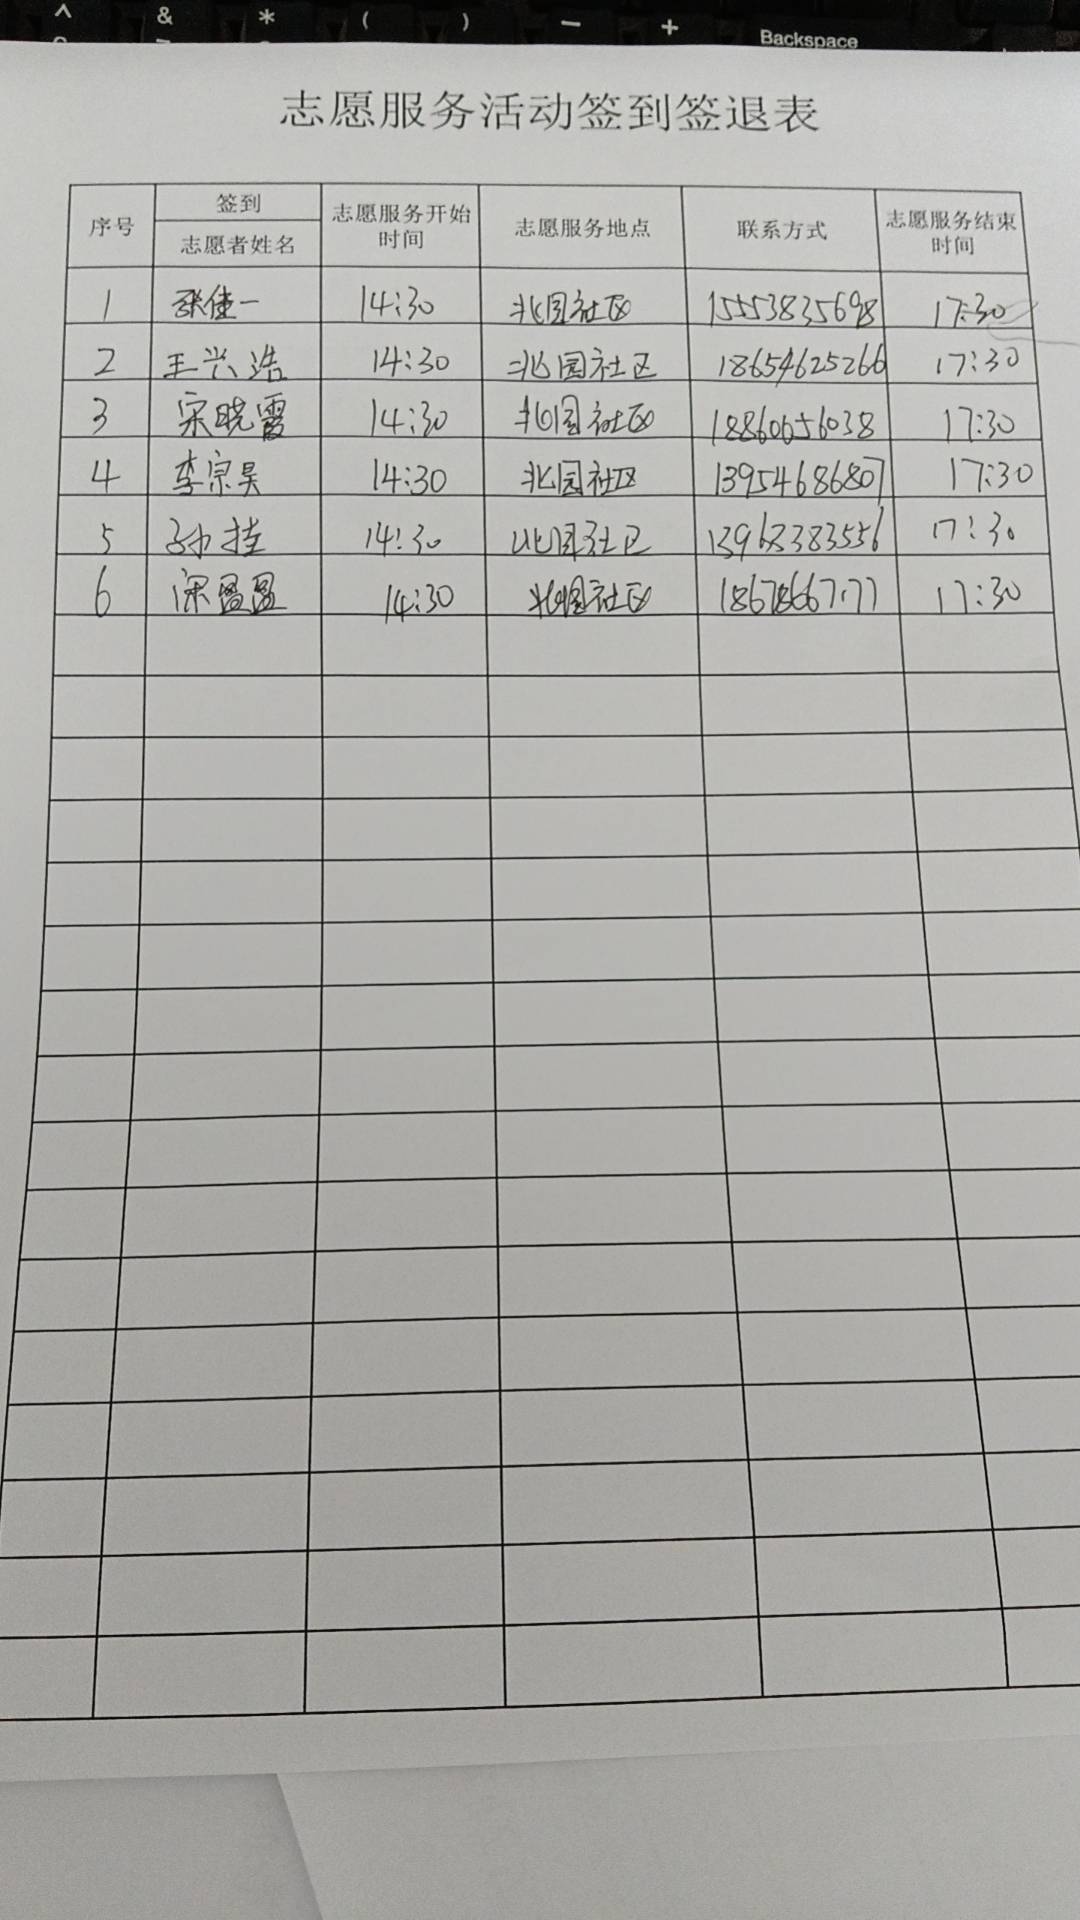 ^ & * ( ) — + Backspace
志愿服务活动签到签退表
序号 签到 志愿者姓名 志愿服务开始时间 志愿服务地点 联系方式 志愿服务结束时间
1 张佳一 14:30 北园社区 15553835698 17:30
2 王兴浩 14:30 北园社区 18654625266 17:30
3 宋晓霞 14:30 北园社区 18860656038 17:30
4 李宗昊 14:30 北园社区 13954686807 17:30
5 孙 14:30 北园社区 17:30
6 盈盈 14:30 北园社区 17:30